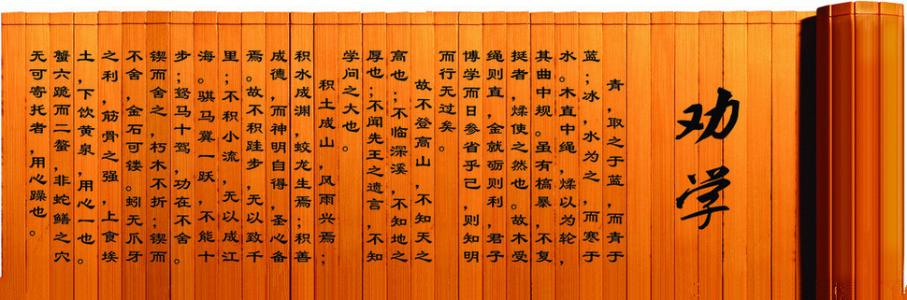 劝学
青,取之于蓝,而青于
蓝;冰,水为之,而寒于
水。木直中绳,煣以为轮,
其曲中规。虽有槁暴,不复
挺者,煣使之然也。故木受
绳则直,金就砺则利,君子
博学而日参省乎己,则知明
而行无过矣。
故不登高山,不知天之
高也;不临深溪,不知地之
厚也;不闻先王之遗言,不知
学问之大也。
积土成山,风雨兴焉;
积水成渊,蛟龙生焉;积善
成德,而神明自得,圣心备
焉。故不积跬步,无以致千
里;不积小流,无以成江
海。骐马冀一跃,不能十
步;驽马十驾,功在不舍。
锲而舍之,朽木不折;锲而
不舍,金石可镂。蚓无爪牙
之利,筋骨之强,上食埃
土,下饮黄泉,用心一也。
蟹六跪而二螯,非蛇鳝之穴
无可寄托者,用心躁也。